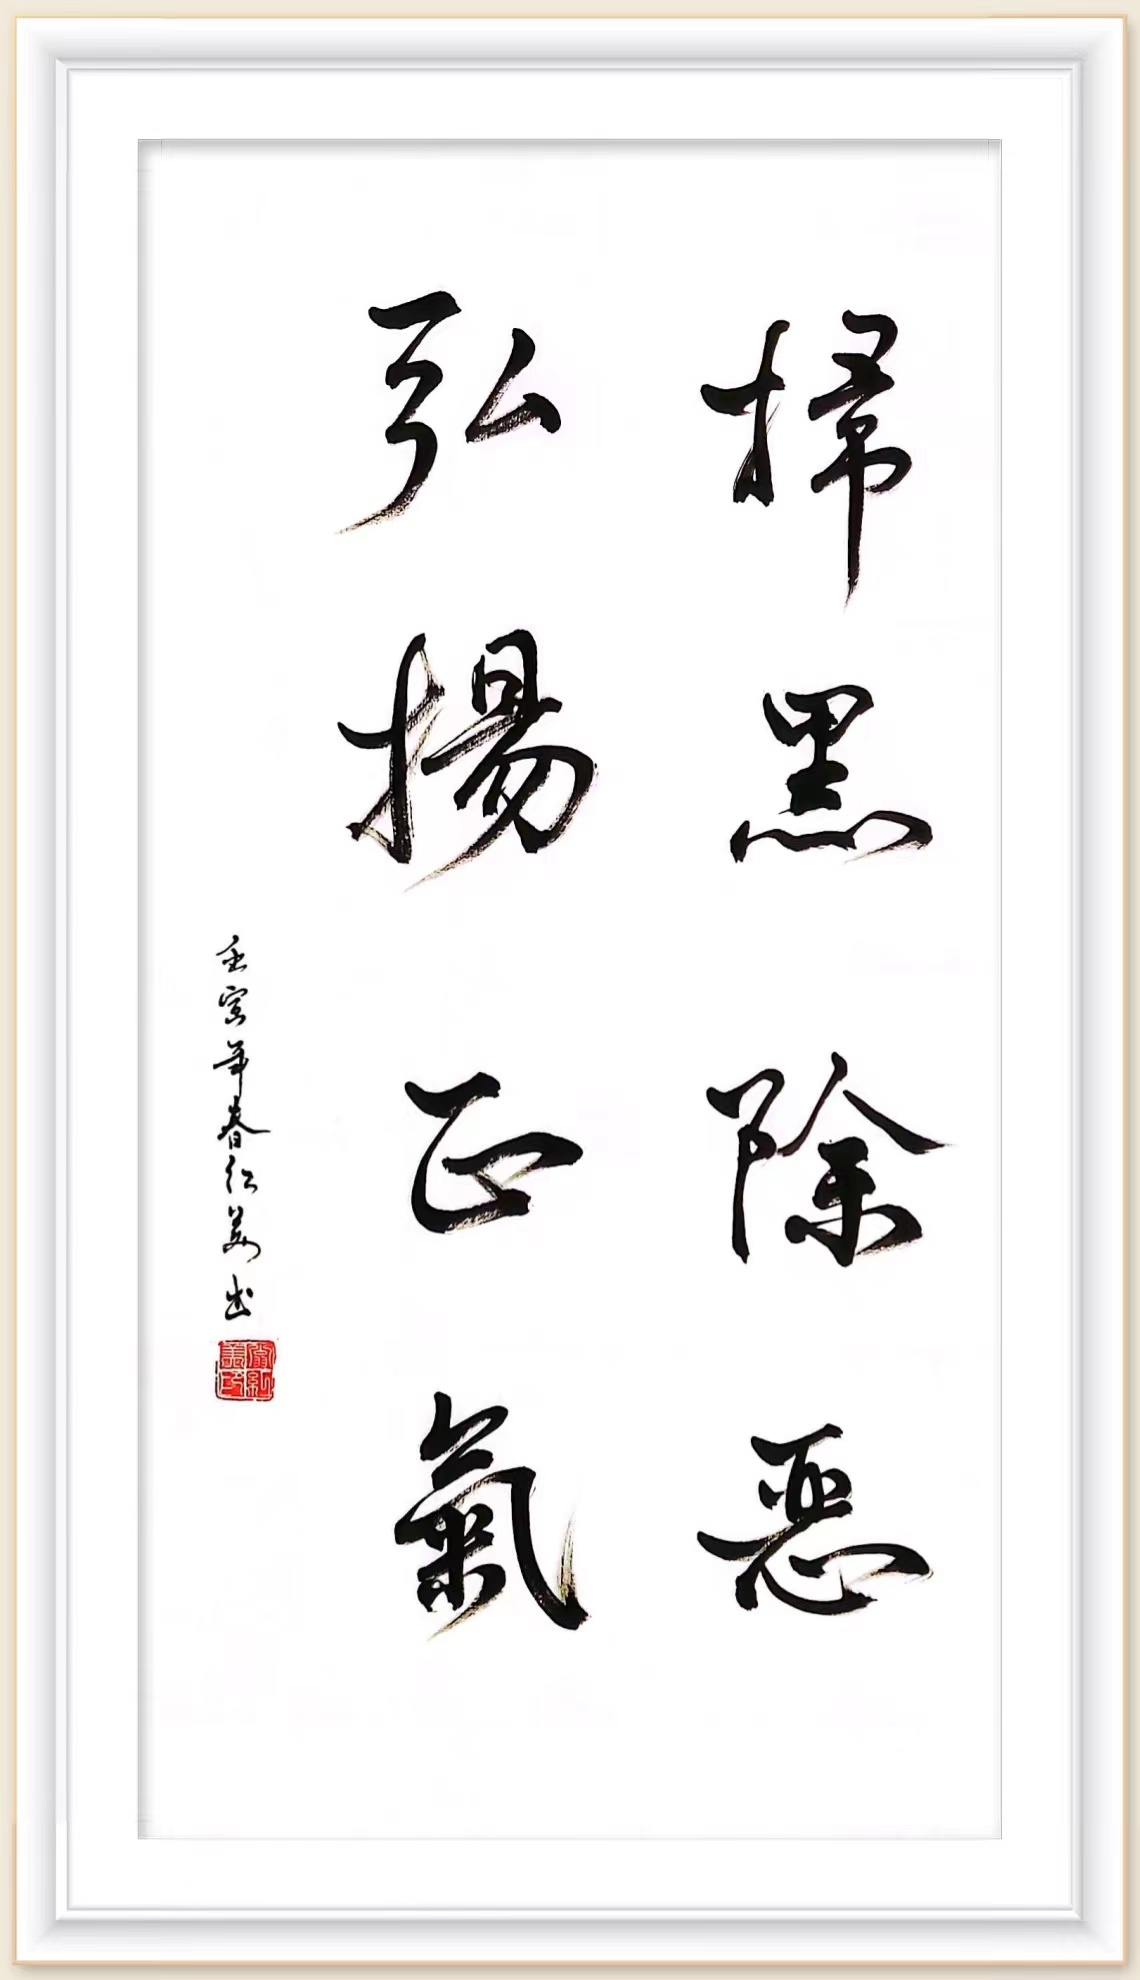 掃黑除惡
弘揚正氣
壬寅年春紅美书